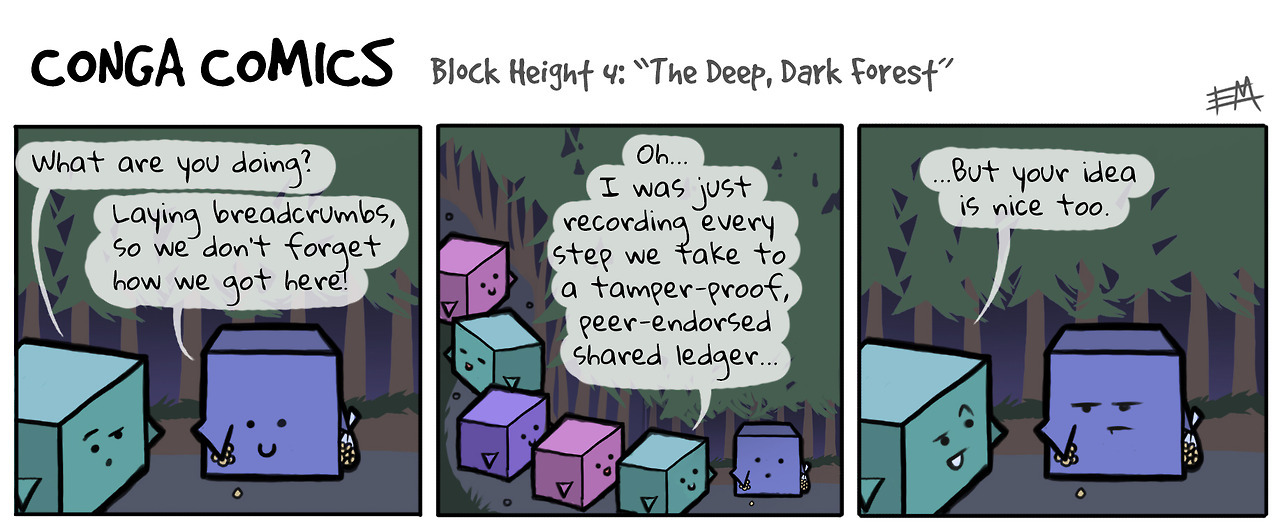 CONGA COMICS
Block Height 4: "The Deep, Dark Forest"
EM
What are you doing?
Laying breadcrumbs,
so we don't forget
how we got here!
Oh...
I was just
recording every
step we take to
a tamper-proof,
peer-endorsed
shared ledger...
...But your idea
is nice too.